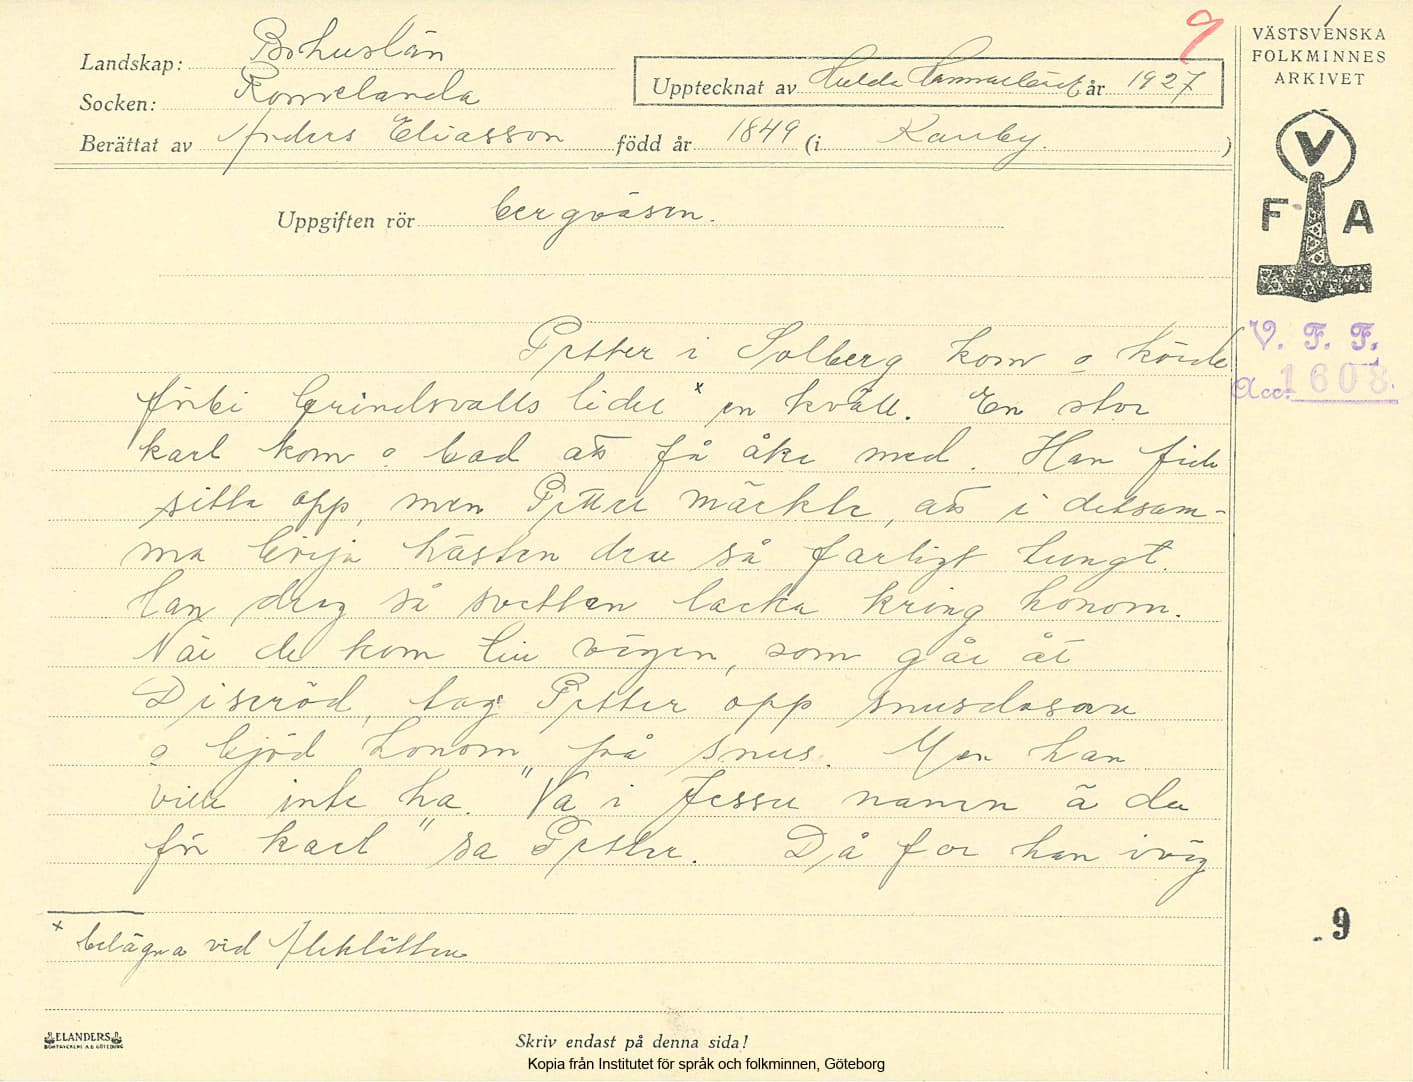 Landskap: Bohuslän
Socken: Romelanda
Upptecknat av Hulda Hammarbäck år 1927
Berättat av Anders Eliasson född år 1849 (i Kareby.)
VÄSTSVENSKA
FOLKMINNES
ARKIVET
V
F A
Uppgiften rör bergväsen.
V. F. F.
Acc. 1608.
Petter i Solberg kom o körde
förbi Grindsvalls lidel x en kväll. En stor
karl kom o bad att få åka med. Han fick
sitta opp, men Petter märkte, att i detsam-
ma börja hästen dra så farligt tungt.
Han drog så svetten lacka kring honom.
När de kom till vägen, som går åt
Diseröd, tog Petter opp snusdosan
o bjöd honom på snus. Men han
ville inte ha. "Va i Jessu namn ä du
för karl" sa Petter. Då for han iväg
x belägna vid Aleklätten
9
ELANDERS
BOKTRYCKERI A.B. GÖTEBORG
Skriv endast på denna sida!
Kopia från Institutet för språk och folkminnen, Göteborg